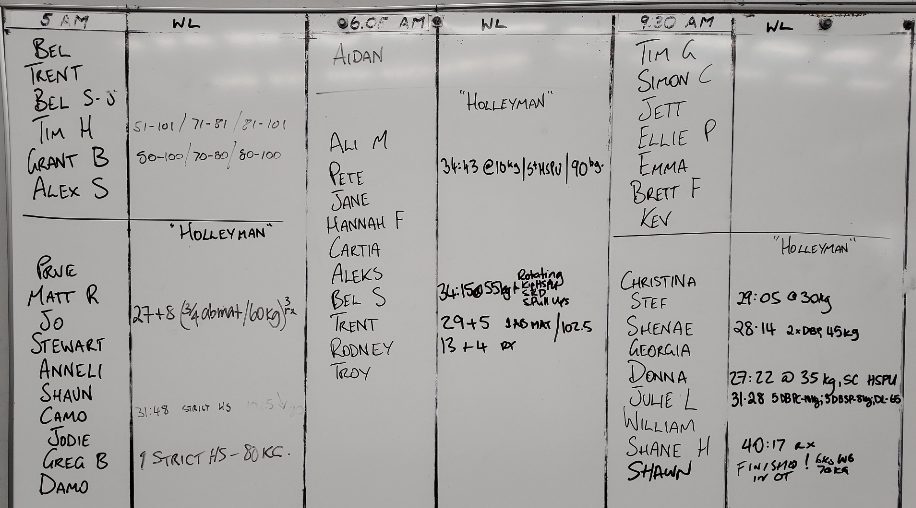 5 AM WL
BEL
TRENT
BEL S-J
TIM H 51-101/71-81/81-101
GRANT B 50-100/70-80/80-100
ALEX S
"HOLLEYMAN"
PRUE
MATT R
JO 27+8 (3/4 abmat/60kg) 3 rx
STEWART
ANNELI
SHAUN
CAMO 31:48 STRICT HS
JODIE
GREG B 9 STRICT HS-80KG.
DAMO
6.05 AM WL
AIDAN
"HOLLEYMAN"
ALI M
PETE 34:43 @10kg/5+HSPU/90kg.
JANE
HANNAH F
CARTIA
ALEKS
BEL S 34:15@55kg+ Rotating
TRENT 29+5 1 AB MAT/102.5
RODNEY 13+4 RX
TROY
9.30 AM WL
TIM G
SIMON C
JETT
ELLIE P
EMMA
BRETT F
KEV
"HOLLEYMAN"
CHRISTINA
STEF 29:05 @30kg
SHENAE 28:14 2xDBP, 45kg
GEORGIA
DONNA 27:22 @ 35 kg, SC HSPU
JULIE L 31-28
WILLIAM
SHANE H 40:17 RX
SHAWN FINISHED IN OT! 6KG WB 70KG